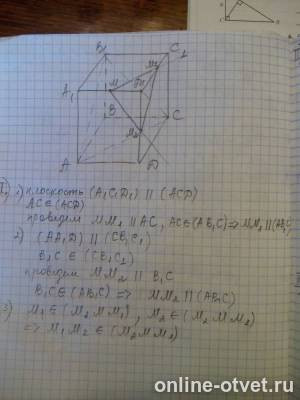 B₁
C₁
M₁
A₁
M
D₁
B
C
M₂
A
D
1) плоскость (A₁C₁D₁) || (ACD)
AC ∈ (ACD)
проведём MM₁ || AC, AC ∈ (AB₁C) => MM₁ || (AB₁C)
2) (AA₁D) || (CB₁C₁)
B₁C ∈ (CB₁C₁)
проведём MM₂ || B₁C
B₁C ∈ (AB₁C) => MM₂ || (AB₁C)
3) M₁ ∈ (M₂MM₁), M₂ ∈ (M₂MM₁)
=> M₁M₂ ∈ (M₂MM₁)
online-otvet.ru